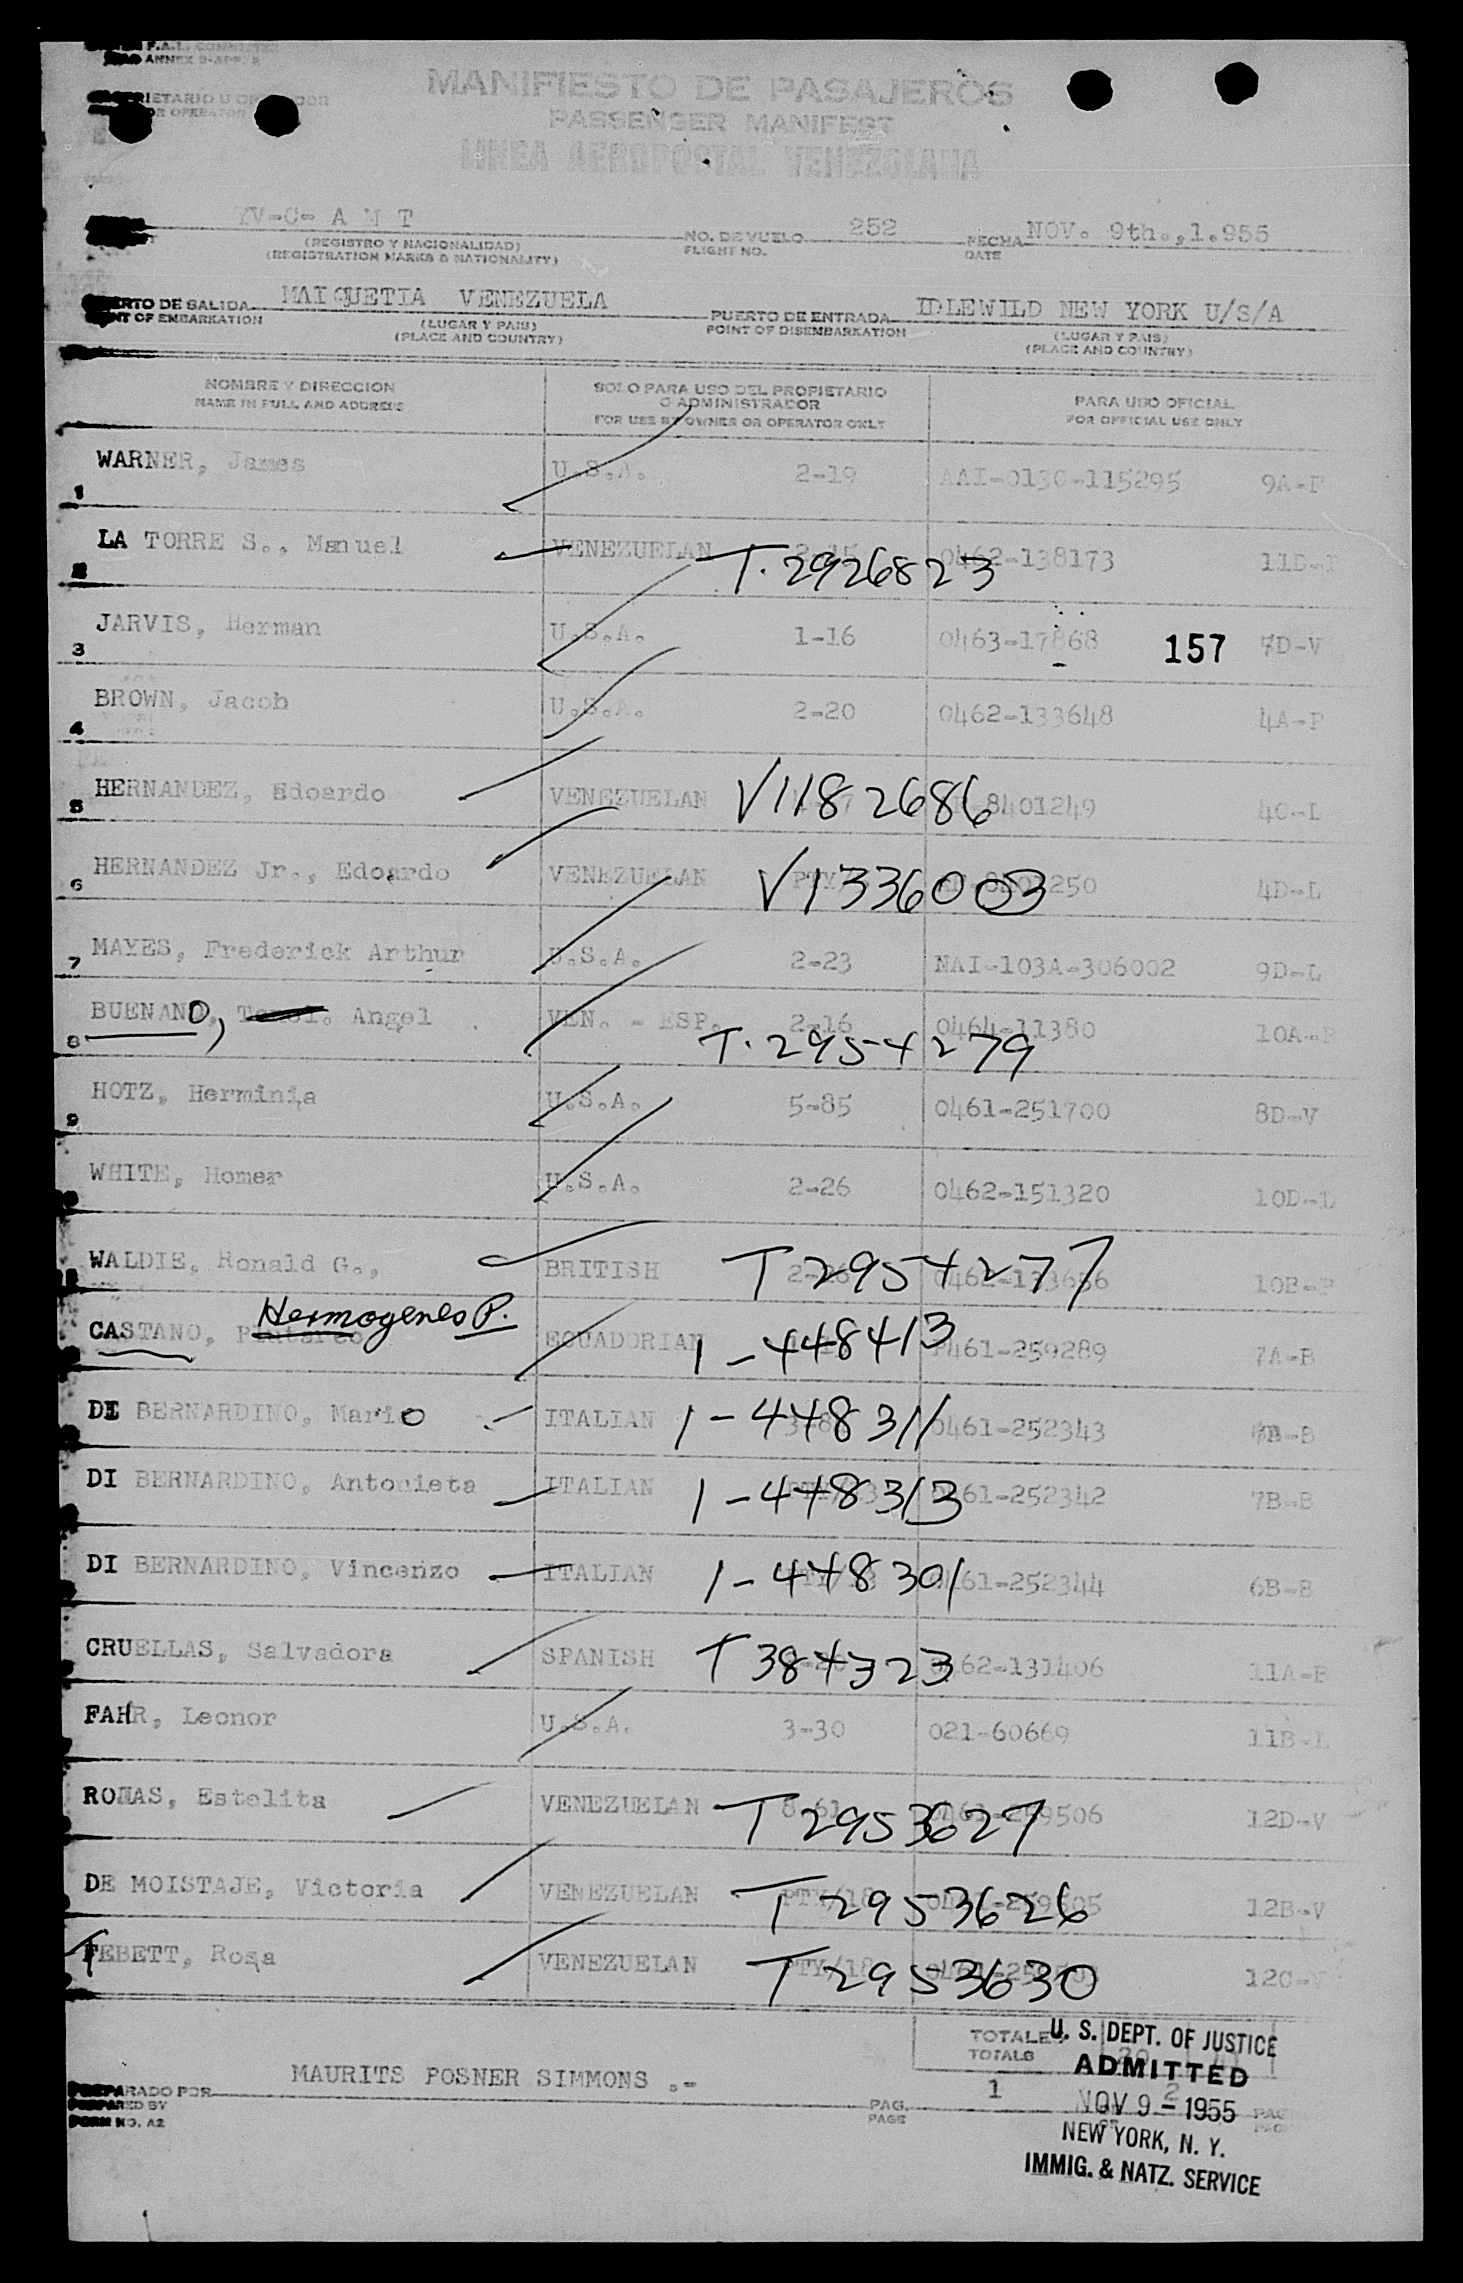 F.A.L. COMMITTEE
ANNEX 9-APP.
MANIFIESTO DE PASAJEROS
PASSENGER MANIFEST
LINEA AEROPOSTAL VENEZOLANA
OR OPERATOR
YV-C-AMT
(REGISTRO Y NACIONALIDAD)
(REGISTRATION MARKS & NATIONALITY)
NO. DE VUELO 252
FLIGHT NO.
FECHA NOV. 9th.,1.955
DATE
PUERTO DE SALIDA MAIQUETIA VENEZUELA
POINT OF EMBARKATION
(LUGAR Y PAIS)
(PLACE AND COUNTRY)
PUERTO DE ENTRADA IDLEWILD NEW YORK U/S/A
POINT OF DISEMBARKATION
(LUGAR Y PAIS)
(PLACE AND COUNTRY)
NOMBRE Y DIRECCION
NAME IN FULL AND ADDRESS
SOLO PARA USO DEL PROPIETARIO
O ADMINISTRADOR
FOR USE BY OWNER OR OPERATOR ONLY
PARA USO OFICIAL
FOR OFFICIAL USE ONLY
1 WARNER, James U.S.A. 2-19 AAI-0130-115295 9A-P
2 LA TORRE S., Manuel VENEZUELAN T. 2926823 0462-138173
3 JARVIS, Herman U.S.A. 1-16 0463-17868 157 7D-V
4 BROWN, Jacob U.S.A. 2-20 0462-133648 4A-P
5 HERNANDEZ, Edoardo VENEZUELAN V1182686 8401249 4C-L
6 HERNANDEZ Jr., Edoardo VENEZUELAN V1336003 4D-L
7 MAYES, Frederick Arthur U.S.A. 2-23 NAI-103A-306002 9D-L
8 BUENANO, Angel VEN. - ESP. 2-16 T. 2954279 0464-11380
9 HOTZ, Herminia U.S.A. 5-85 0461-251700 8D-V
WHITE, Homer U.S.A. 2-26 0462-151320 10D-L
WALDIE, Ronald G., BRITISH T2954277 0462-133686
Hermogenes P.
CASTANO, ECUADORIAN 1-448413 0461-259289 7A-B
DI BERNARDINO, Mario ITALIAN 1-448311 0461-252343
DI BERNARDINO, Antonieta ITALIAN 1-448313 0461-252342 7B-B
DI BERNARDINO, Vincenzo ITALIAN 1-448301 0461-252344 6B-B
CRUELLAS, Salvadora SPANISH T384323 0462-131406 11A-B
FAHR, Leonor U.S.A. 3-30 021-60669 11B-L
ROMAS, Estelita VENEZUELAN T2953627 12D-V
DE MOISTAJE, Victoria VENEZUELAN T2953626 12B-V
TEBETT, Rosa VENEZUELAN T2953630
TOTALES
TOTALS
U. S. DEPT. OF JUSTICE
ADMITTED
NOV 9 - 1955
NEW YORK, N. Y.
IMMIG. & NATZ. SERVICE
PREPARADO POR MAURITS POSNER SIMMONS .-
PREPARED BY
FORM NO. A2
PAG. 1
PAGE
2